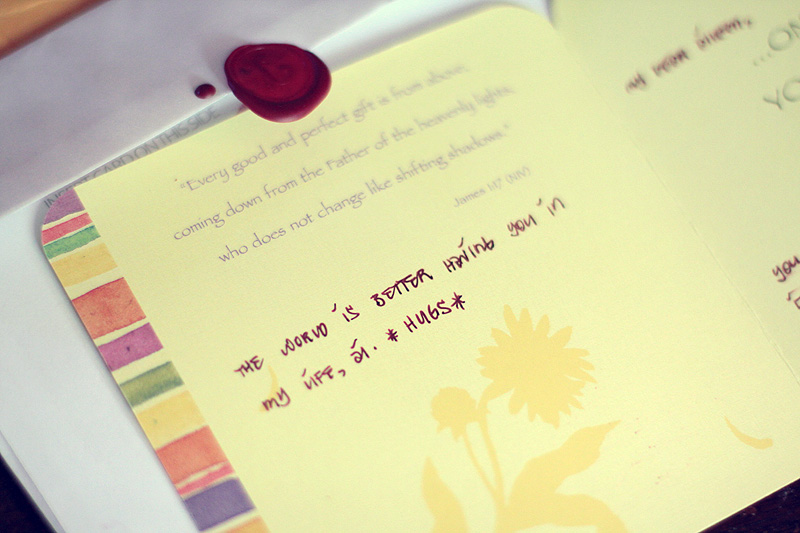 INSERT CARD ON THIS SIDE
"Every good and perfect gift is from above,
coming down from the Father of the heavenly lights,
who does not change like shifting shadows."
James 1:17 (NIV)
THE WORLD IS BETTER HAVING YOU IN
MY LIFE, AI. *HUGS*
MY DEAR AILEEN,
...ON
YO
YOU